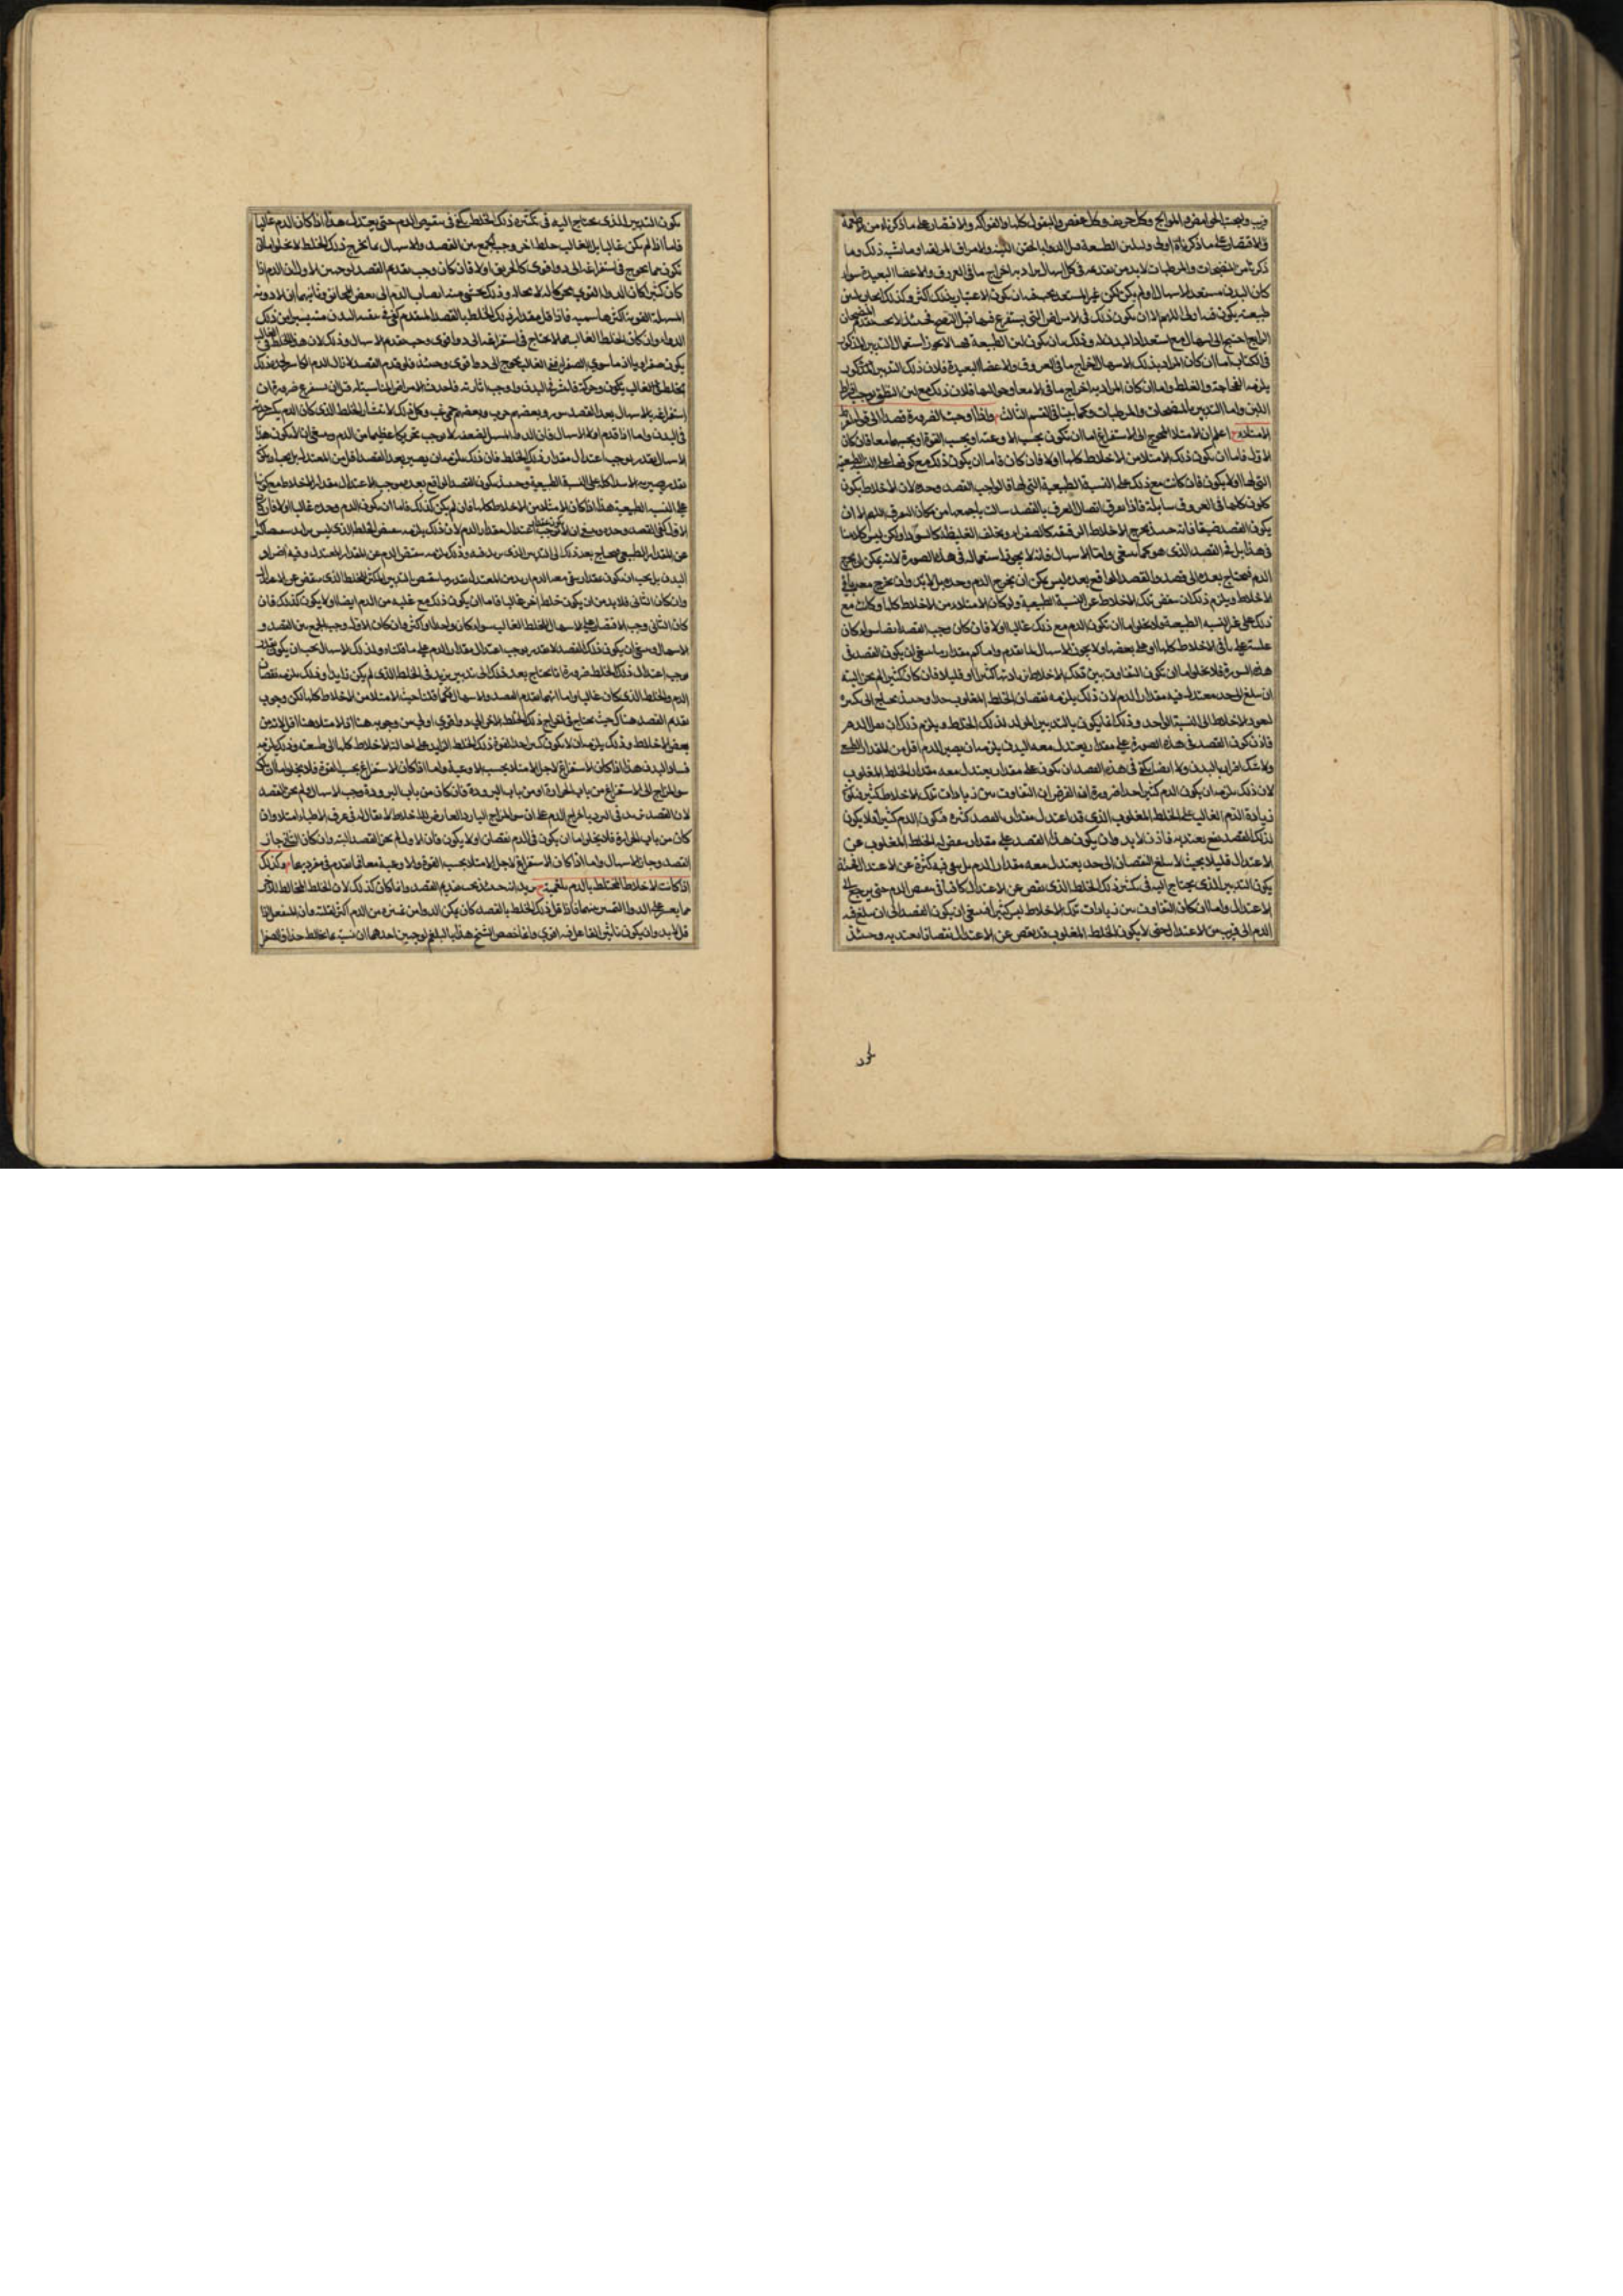 قريب ويجتنب الحوامض والموالح وكل حريف وكل عفص والبقول كلها والفواكه والاقتصار على ما ذكرناه من
في الاقتصار على ما ذكرناه اولى وتليين الطبيعة قبل الدواء بالحقن اللينة والامراق المزلقة وما شبه ذلك وما
ذكرناه من المنضجات والمرطبات لابد من تقدمه في كل اسهال يراد به اخراج ما في العروق والاعضا البعيدة سواء
كان البدن مستعدا للاسهال او لم يكن لكن غير المستعد يجب ان يكون الاعتبار بذلك اكثر وكذلك
طبيعته يكون اللهم الا ان يكون ذلك في الامراض التي يستفرغ فيها قبل النضج فحينئذ لا
احتيج الى اسهال مع استعداد البدن له وذلك بان يكون لين الطبيعة فهل يجوز استعمال التدبير المذكور
في الكتاب اما ان كان المراد بذلك الاسهال اخراج ما في العروق والاعضا البعيدة فلان ذلك التدبير
الفجاجة والغلظ واما ان كان المراد به اخراج ما في الامعا وحواليها فلان ذلك مع لين
اللين واما التدبير بالمنضجات والمرطبات فكما بينا في القسم الثالث واذا اوجبت الضرورة فصدا الى قوله
الامتلاء اعلم ان الامتلا المحوج الى الاستفراغ اما ان يكون بحسب الاوعية او بحسب القوة او بحسبهما معا فان كان
الاول فاما ان يكون ذلك الامتلا من الاخلاط كلها او لا فان كان فاما ان يكون ذلك مع كونها على النسبة الطبيعية
التي لها او لا يكون فان كانت مع ذلك على النسبة الطبيعية التي لها فالواجب الفصد وحده لان الاخلاط يكون
كلها في العروق سايلة فاذا تفرق اتصال العرق بالفصد سالت باجمعها من مكان التفرق اللهم الا ان
يكون الفصد ضيقا فانه حينئذ يخرج الاخلاط الرقيقة كالصفراء ويخلف الغليظة كالسوداء ولكن ليس كلامنا
في هذا بل في الفصد الذي هو كما ينبغي واما الاسهال فانه لا يجوز استعماله في هذه الصورة لانه يمكن ان يخرج
الدم فيحتاج بعده الى فصد والفصد الواقع بعده ليس يمكن ان يخرج الدم وحده بل لابد وان يخرج معه باقي
الاخلاط ويلزم ذلك ان ينقص تلك الاخلاط عن النسبة الطبيعية وان كان الامتلاء من الاخلاط كلها وكانت مع
ذلك على غير النسبة الطبيعية فلا يخلو اما ان يكون الدم مع ذلك غالبا او لا فان كان وجب الفصد ايضا سواء كان
غلبته على باقي الاخلاط كلها او على بعضها ولا يجوز الاسهال لما تقدم واما كم مقدار ما ينبغي ان يكون الفصد في
هذه الصورة فلا يخلو اما ان يكون التفاوت بين تلك الاخلاط في زيادتها كثيرا او قليلا فان كان كثيرا لم يجز البتة
ان يبلغ الى حد يعتدل فيه مقدار الدم لان ذلك يلزمه نقصان الخلط المغلوب جدا وحينئذ يحتاج الى تكثيره
لتعود الاخلاط الى النسبة الواحد وذلك انما يكون بالتدبير المولد لذلك الخلط ويلزم ذلك ان يقل الدم
فاذن كون الفصد في هذه الصورة على مقدار يعتدل معه البدن يلزمه ان يصير الدم اقل من المقدار الطبيعي
ولا شك اضراره بالبدن ولا ايضا يكفي في هذه الفصد ان يكون على مقدار يعتدل معه مقدار الخلط المغلوب
لان ذلك يلزمه ان يكون الدم كثيرا جدا ضرورة اذ الفرض ان التفاوت بين زيادات تلك الاخلاط كثير
زيادة الدم الغالب على الخلط المغلوب الذي قد اعتدل مقداره بالفصد كثيرة فيكون الدم كثيرا فلا يكون
لذلك الفصد نفع يعتد به فاذن لابد وان يكون هذا الفصد على مقدار ينقص له الخلط المغلوب عن
الاعتدال قليلا بحيث لا يبلغ النقصان الى حد يعتدل معه مقدار الدم بل يبقى فيه كثرة عن الاعتدال
يكون التدبير الذي يحتاج اليه في تكثير ذلك الخلط الذي نقص عن الاعتدال كافيا في نقص الدم حتى يرجع الى
الاعتدال واما ان كان التفاوت بين زيادات تلك الاخلاط ليس كثيرا فينبغي ان يكون الفصد الى ان يبلغ فيه
الدم الى قريب من الاعتدال حتى لا يكون الخلط المغلوب قد نقص عن الاعتدال نقصانا يعتد به وحينئذ
يكون التدبير الذي يحتاج اليه في تكثير ذلك الخلط يكفي في تنقيص الدم حتى يعتدل هذا اذا كان الدم غالبا
فاما اذا لم يكن غالبا بل الغالب خلط اخر وجب الجمع بين الفصد والاسهال بما يخرج ذلك الخلط ولا يخلو اما ان
يكون مما يحوج في استفراغه الى دواء قوي كالخربق او لا فان كان وجب تقديم الفصد لوجهين الاول ان الدم اذا
كان كثيرا كان الدواء القوي يحركه لا محالة وذلك يخشى منه انصباب الدم الى بعض المخانق وثانيهما ان الادوية
المسهلة القوية اكثرها سمية فاذا قل مقدار ذلك الخلط بالفصد المتقدم كفى في تنقية البدن منه يسير من ذلك
الدواء وان كان الخلط الغالب مما لا يحتاج في استفراغه الى دواء قوي وجب تقديم الاسهال وذلك لان هذا الخلط في الغالب
يكون صفراويا اذ ما سوى الصفراء ففي الغالب يحوج الى دواء قوي وحينئذ فلو قدم الفصد لزال الدم الكاسر لحدة ذلك
الخلط في الغالب بكونه وحركته
استفراغه بالاسهال بعد الفصد
في البدن واما اذا قدم الاسهال فان الدواء المسهل الضعيف لا يوجب تحريكا عظيما من الدم وينبغي ان لا يكون هذا
الاسهال بقدر يوجب اعتدال مقدار ذلك الخلط فان ذلك يلزمه ان يصير بعد الفصد اقل من المعتدل بل يجب ان يكون
بقدر يصير به الامتلاء كله على النسبة الطبيعية وحينئذ يكون الفصد الواقع بعده موجب لاعتدال مقدار الاخلاط مع كونها
على النسبة الطبيعية هذا اذا كان الامتلاء من الاخلاط كلها فان لم يكن كذلك فاما ان يكون الدم وحده غالبا او لا فان كان
الاول كفى الفصد وحده وينبغي ان لا يكون بحيث اعتدال مقدار الدم لان ذلك يلزمه نقص الخلط الذي ليس بزايد
عن المقدار الطبيعي فيحتاج بعد ذلك الى التدبير الذي يزيد فيه وذلك يلزمه نقص الدم عن المقدار المعتدل وفيه اضرار
البدن بل يجب ان يكون بمقدار يبقى معه الدم ازيد من المعتدل بقدر ما ينقصه التدبير المكثر للخلط الذي ينقص عن الاعتدال
وان كان الثاني فلابد من ان يكون خلط اخر غالبا فاما ان يكون ذلك مع غلبة من الدم ايضا او لا يكون كذلك فان
كان الثاني وجب الاقتصار على الاسهال للخلط الغالب سواء كان واحدا او اكثر وان كان الاول وجب الجمع بين الفصد و
الاسهال وينبغي ان يكون ذلك الفصد لا بقدر يوجب اعتدال مقدار الدم على ما قلناه وكذلك الاسهال يجب ان يكون
يوجب اعتدال ذلك الخلط ضرورة انا نحتاج بعد ذلك الى تدبير يزيد في الخلط الذي لم يكن زايدا وذلك يلزمه نقصان
الدم والخلط الذي كان غالبا واما ايهما تقدم الفصد والاسهال فكما قلنا حيث الامتلا من الاخلاط كلها لكن وجوب
تقديم الفصد هناك حيث يحتاج في اخراج ذلك الخلط الاخر الى دواء قوي اولى من وجوبه هنا اذ الامتلا هنا اقل لانه من
بعض الاخلاط وذلك يلزمه ان لا يكون كثيرا
فساد البدن هذا اذا كان الاستفراغ لاجل الامتلاء بحسب الاوعية واما اذا كان الاستفراغ بحسب القوة فلا يخلو اما ان يكون
سو المزاج الى الاستفراغ من باب الحرارة او من باب البرودة فان كان من باب البرودة وجب الاسهال ولم يجز الفصد
لان الفصد يزيد في البرد باخراج الدم على ان سو المزاج البارد العارض للاخلاط لا يقال له في عرف الاطباء امتلاء وان
كان من باب الحرارة فلا يخلو اما ان يكون في الدم نقصان او لا يكون فان كان الاول لم يجز الفصد البتة وان كان الثاني جاز
الفصد وجاز الاسهال واما اذا كان الاستفراغ لاجل الامتلاء بحسب القوة والاوعية معا فما تقدم في مفرديهما وكذلك
اذا كانت الاخلاط المختلطة بالدم بلغمية يريد انه حينئذ يجب تقديم الفصد وانما كان كذلك لان الخلط المخالط للدم
مما يعسر على الدواء التمييز بينهما فاذا قل ذلك الخلط بالفصد كان تمكن الدواء من تمييزه من الدم اكثر لقلته
قل لابد وان يكون تاثير الفاعل فيه اقوى وانما خصص الشيخ هذا بالبلغم لوجهين احدهما ان
يكون